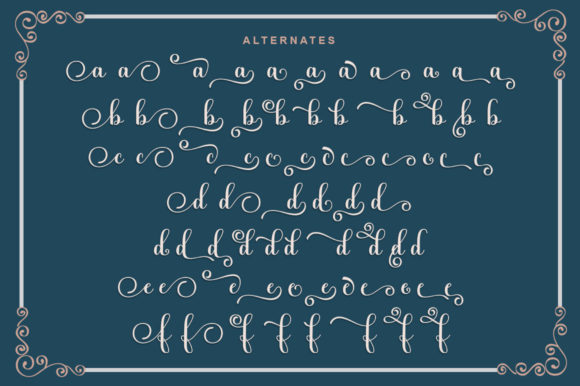 ALTERNATES
a a a a a a a a a a a a
b b b b b b b b b b b
c c c c c c c c c c c c
d d d d d d
d d d d d d d d d d
e e e e e e e e e e e e
f f f f f f f f